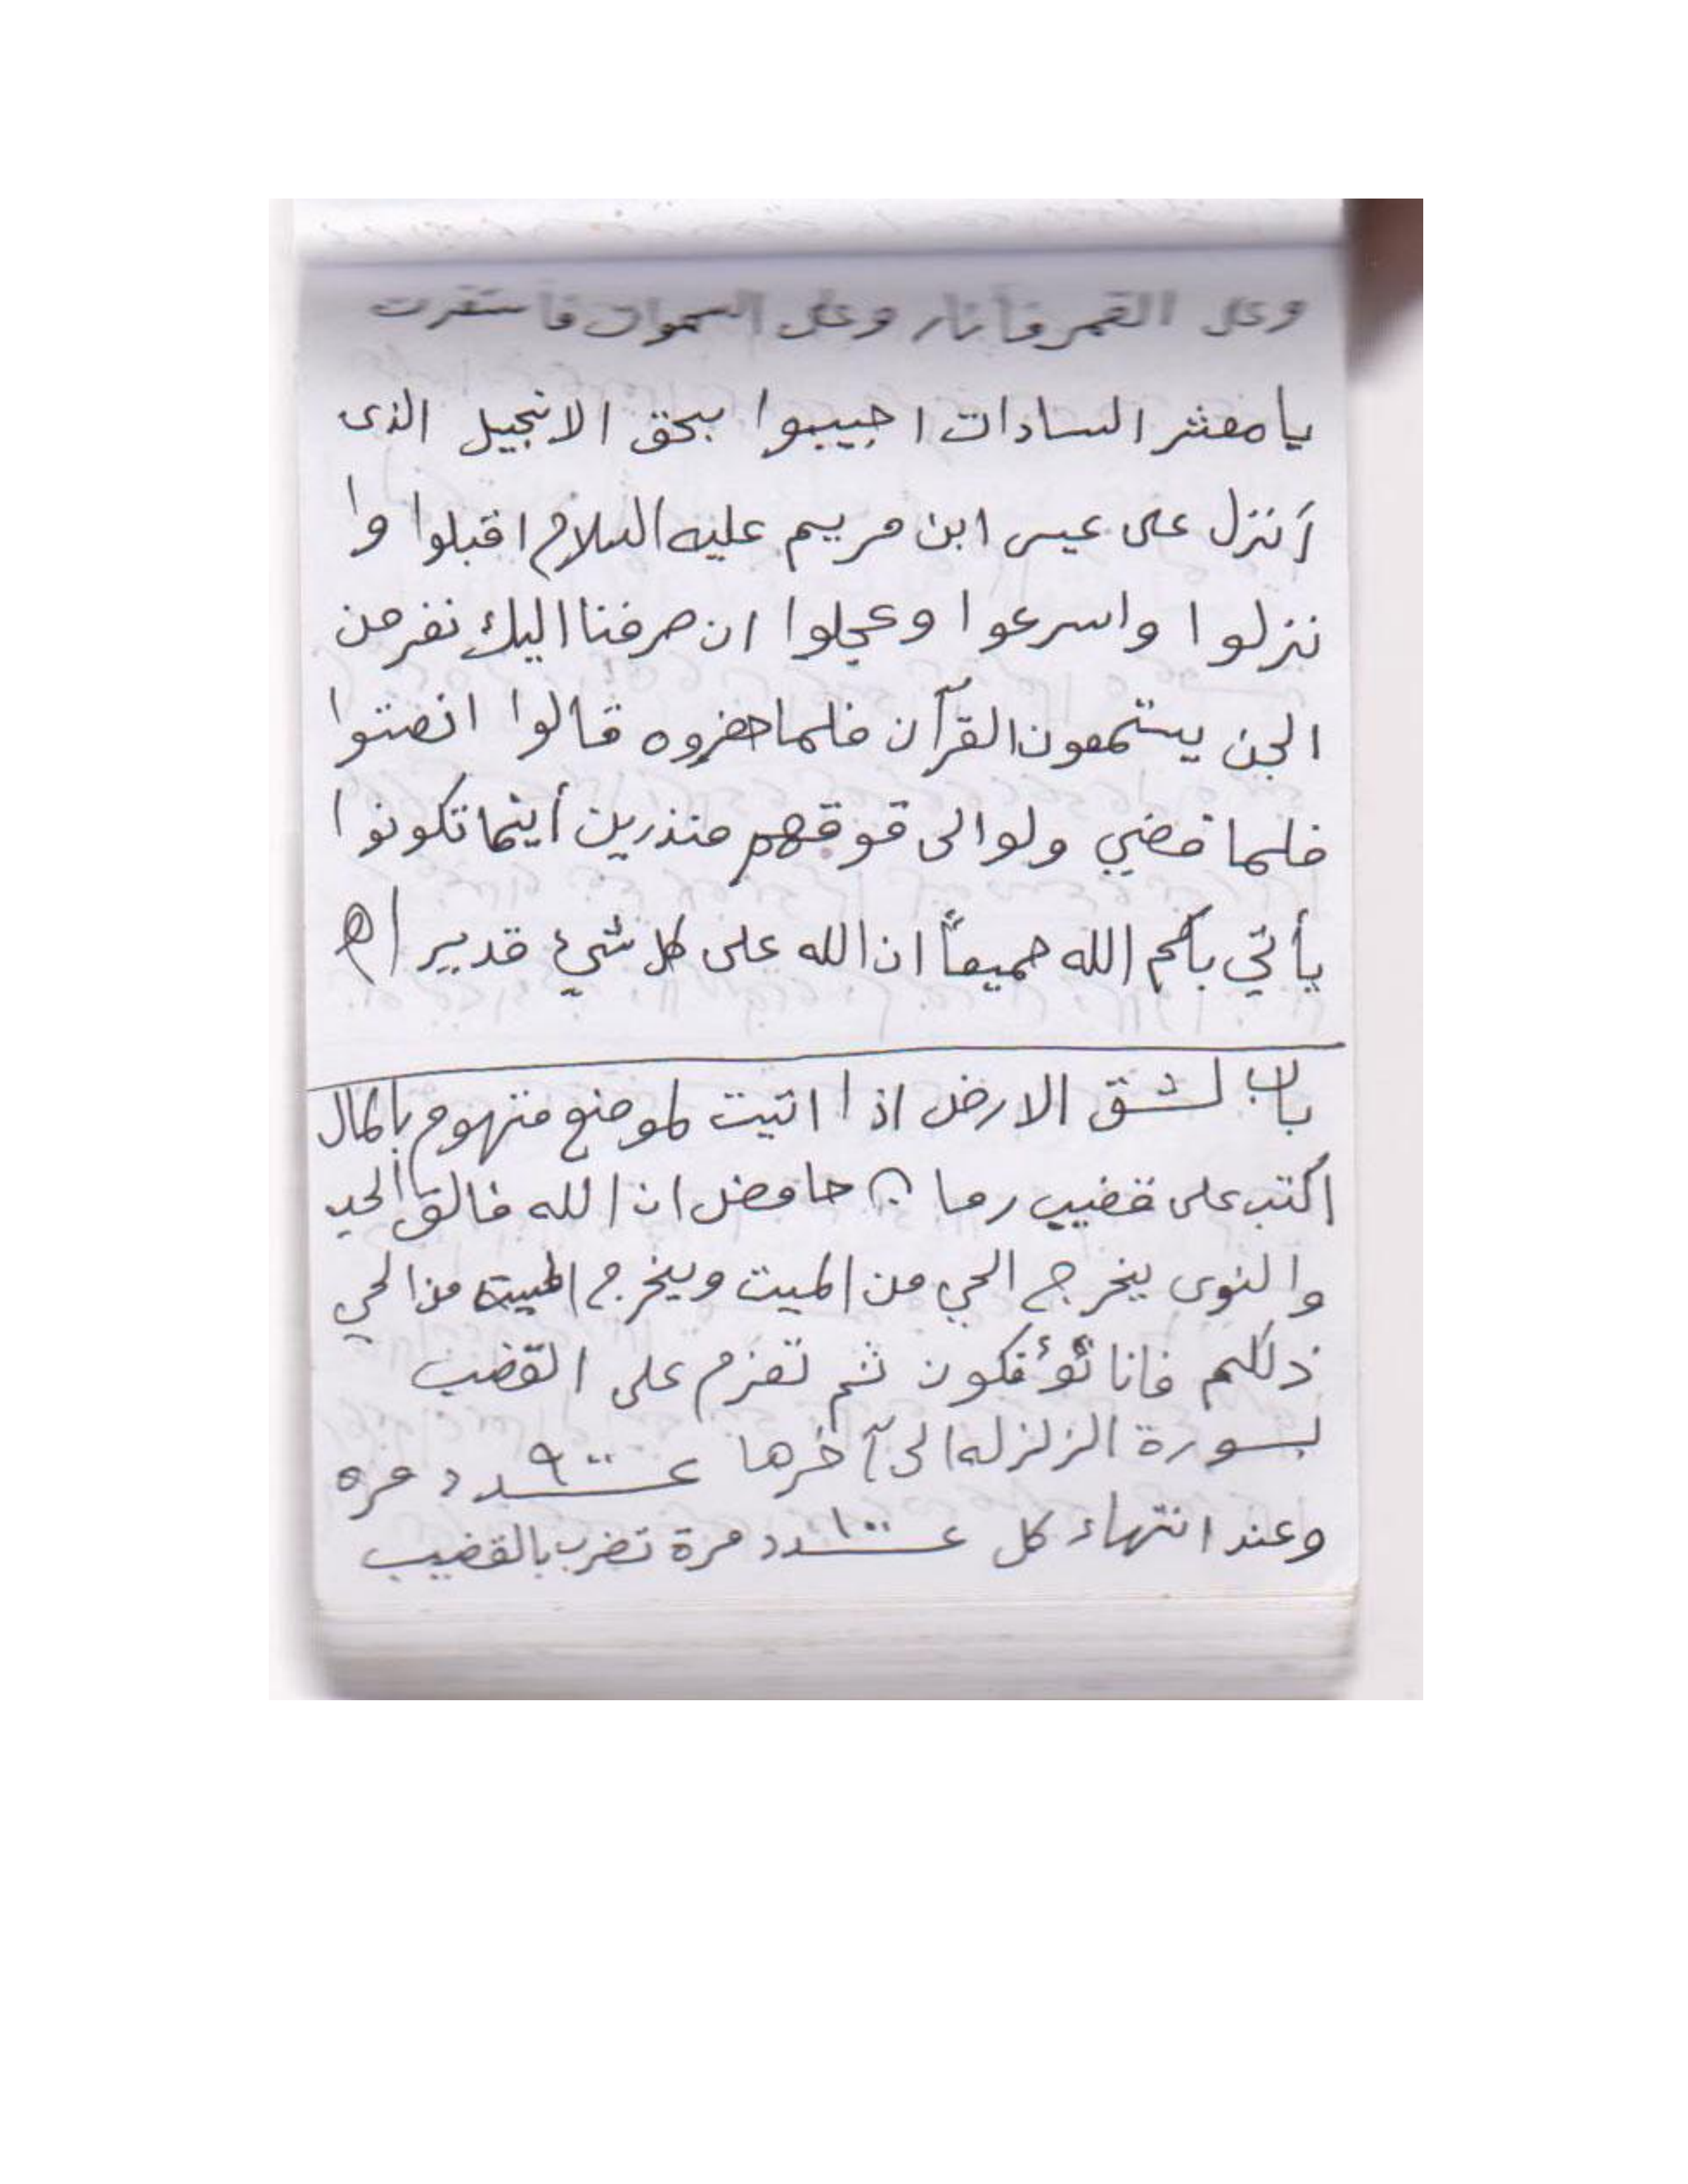 وعلى القمر فأنار وعلى السموات فأستقرت
يا معشر السادات اجيبوا بحق الانجيل الذى
أنزل على عيسى ابن مريم عليه السلام اقبلوا وا
نزلوا واسرعوا وعجلوا ان صرفنا اليك نفر من
الجن يستمعون القرآن فلما حضروه قالوا انصتوا
فلما قضي ولوا الى قوقهم منذرين أينما تكونوا
يأتي بكم الله جميعاً ان الله على كل شيئ قدير اه
باب لشق الارض اذا اتيت لموضع متهوم بالمال
اكتب على قضيب رمان حامض ان الله فالق الحب
والنوى يخرج الحي من الميت ويخرج الميت من الحي
ذلكم فانا تؤفكون ثم تعزم على القضب
بسورة الزلزله الى آخرها عـ٩٠٠ـدد مره
وعند انتهاء كل عـ١٠٠ـدد مرة تضرب بالقضيب